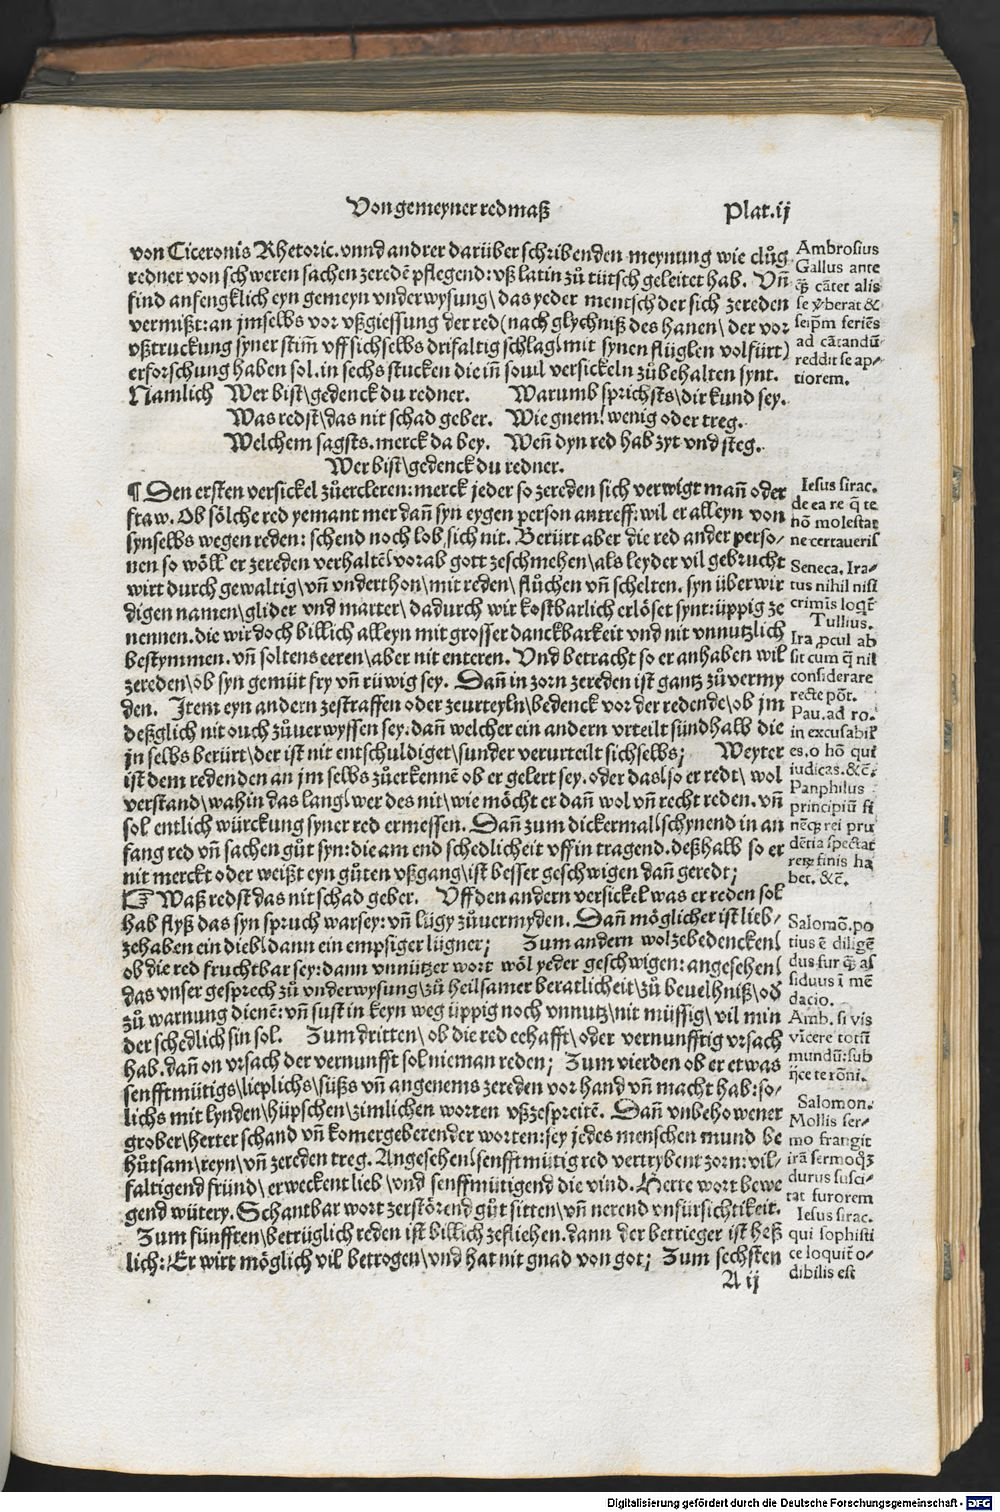 Von gemeyner redmaß
Plat.ij
von Ciceronis Rhetoric. vnnd andrer darüber schribenden meynung wie clůg
redner von schweren sachen zeredē pflegend: vß latin zů tütsch geleitet hab. Vñ
sind anfengklich eyn gemeyn vnderwysung\ das yeder mentsch der sich zereden
vermißt: an jmselbs vor vßgiessung der red (nach glychniß des hanen\ der vor
vßtruckung syner stiṁ vff sich selbs drifaltig schlag\ mit synen flüglen volfürt)
erforschung haben sol. in sechs stucken die iñ souil versickeln zůbehalten synt.
Namlich Wer bist\ gedenck du redner. Warumb sprichsts\ dir kund sey.
Was redst\ das nit schad geber. Wie gnem\ wenig oder treg.
Welchem sagsts. merck da bey. Weñ dyn red hab zyt vnd steg.
Wer bist\ gedenck du redner.
¶ Den ersten versickel zůercleren: merck jeder so zereden sich verwigt mañ oder
fraw. Ob sölche red yemant mer dañ syn eygen person antreff: wil er alleyn von
synselbs wegen reden: schend noch lob sich nit. Berürt aber die red ander perso-
nen so wöll er zereden verhaltē\ vorab gott zeschmehen\ als leyder vil gebrucht
wirt durch gewaltig\ vñ vnderthon\ mit reden\ flůchen vñ schelten. syn überwir
digen namen\ glider vnd marter\ dadurch wir kostbarlich erlöset synt: üppig ze
nennen. die wir doch billich alleyn mit grosser danckbarkeit vnd nit vnnutzlich
bestymmen. vñ soltens eeren\ aber nit enteren. Vnd betracht so er anhaben wil
zereden\ ob syn gemüt fry vñ rüwig sey. Dañ in zorn zereden ist gantz zůvermy
den. Item eyn andern zestraffen oder zeurteyln\ bedenck vor der redende\ ob jm
deßglich nit ouch zůuerwyssen sey. dañ welcher ein andern vrteilt sündhalb die
jn selbs berürt\ der ist nit entschuldiget\ sunder verurteilt sich selbs; Weyter
ist dem redenden an jm selbs zůerkennē ob er gelert sey. oder das\ so er redt\ wol
verstand\ wahin das lang\ wer des nit\ wie möcht er dañ wol vñ recht reden. vñ
sol entlich würckung syner red ermessen. Dañ zum dickermal\ schynend in an
fang red vñ sachen gůt syn: die am end schedlicheit vff in tragend. deßhalb so er
nit merckt oder weißt eyn gůten vßgang\ ist besser geschwigen dañ geredt;
☞ Waß redst das nit schad geber. Vff den andern versickel was er reden sol
hab flyß das syn spruch war sey: vñ lügy zůuermyden. Dañ möglicher ist lieb-
zehaben ein dieb\ dann ein empsiger lügner; Zum andern wol zebedencken\
ob die red fruchtbar sey: dann vnnützer wort wöl yeder geschwigen: angesehen\
das vnser gesprech zů vnderwysung\ zů heilsamer beratlicheit\ zů beuelhniß\ oď
zů warnung dienē: vñ sust in keyn weg üppig noch vnnutz\ nit müssig\ vil min
der schedlich sin sol. Zum dritten\ ob die red eehafft\ oder vernunfftig vrsach
hab. dañ on vrsach der vernunfft sol nieman reden; Zum vierden ob er etwas
senfftmütigs\ lieplichs\ süßs vñ angenems zereden vor hand vñ macht hab: so-
lichs mit lynden\ hüpschen\ zimlichen worten vßzespreitē. Dañ vnbehowener
grober\ herter schand vñ komergeberender worten: sey jedes menschen mund be
hůtsam\ reyn\ vñ zereden treg. Angesehen\ senfftmütig red vertrybent zorn: vil-
faltigend fründ\ erweckent lieb\ vnd senffmütigend die vind. Herte wort bewe
gend wütery. Schantbar wort zerstörend gůt sitten\ vñ nerend vnfürsichtikeit.
Zum fünfften\ betrüglich reden ist billich zefliehen. dann der betrieger ist heß
lich: Er wirt möglich vil betrogen\ vnd hat nit gnad von got; Zum sechsten
A ij
Ambrosius
Gallus ante
q̄ƺ cātet alis
se v̓berat &
seip̄m feriēs
ad cātandū
reddit se ap-
tiorem.
Iesus sirac.
de ea re q̄ te
nō molestat
ne certaueris
Seneca. Ira-
tus nihil nisi
crimis loqt̄
Tullius.
Ira ꝓcul ab
sit cum q̄ nil
considerare
recte pōt.
Pau. ad ro.
in excusabił
es. o hō qui
iudicas. &c̄.
Panphilus
principiū fi
nēqƺ rei pru
dētia spectat
reꝝ finis ha
bet. &c̄.
Salomō. po
tius ē diligē
dus fur q̄ƺ as
siduus ī mē
dacio.
Amb. si vis
vīcere totū
mundū: sub
ijce te rōni.
Salomon.
Mollis ser-
mo frangit
irā sermoqƺ
durus susci-
tat furorem
Iesus sirac.
qui sophisti
ce loquit̄ o-
dibilis est
Digitalisierung gefördert durch die Deutsche Forschungsgemeinschaft - DFG